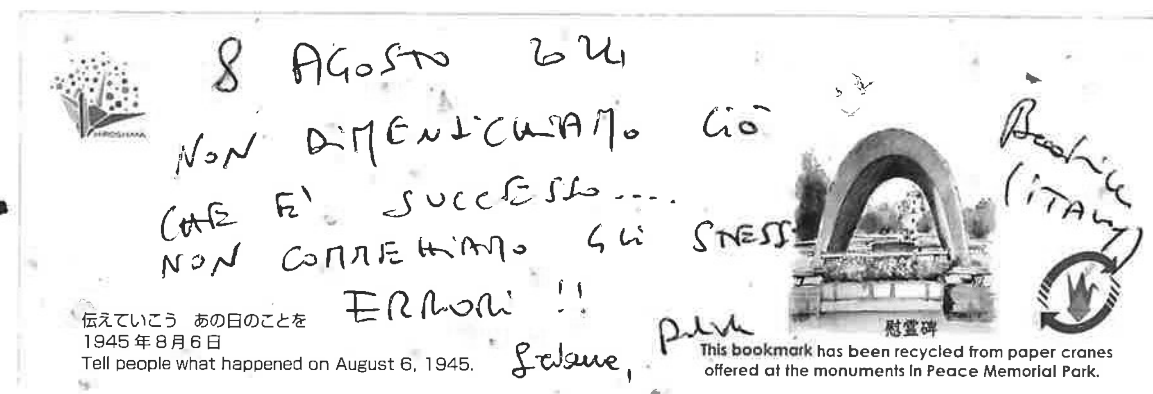 8 AGOSTO 2024
NON DIMENTICHIAMO CIÒ
CHE E' SUCCESSO....
NON COMMETTIAMO GLI STESSI
ERRORI !!
Beatrice
(ITALY)
HIROSHIMA
伝えていこう あの日のことを
1945年8月6日
Tell people what happened on August 6, 1945.
慰霊碑
This bookmark has been recycled from paper cranes
offered at the monuments in Peace Memorial Park.